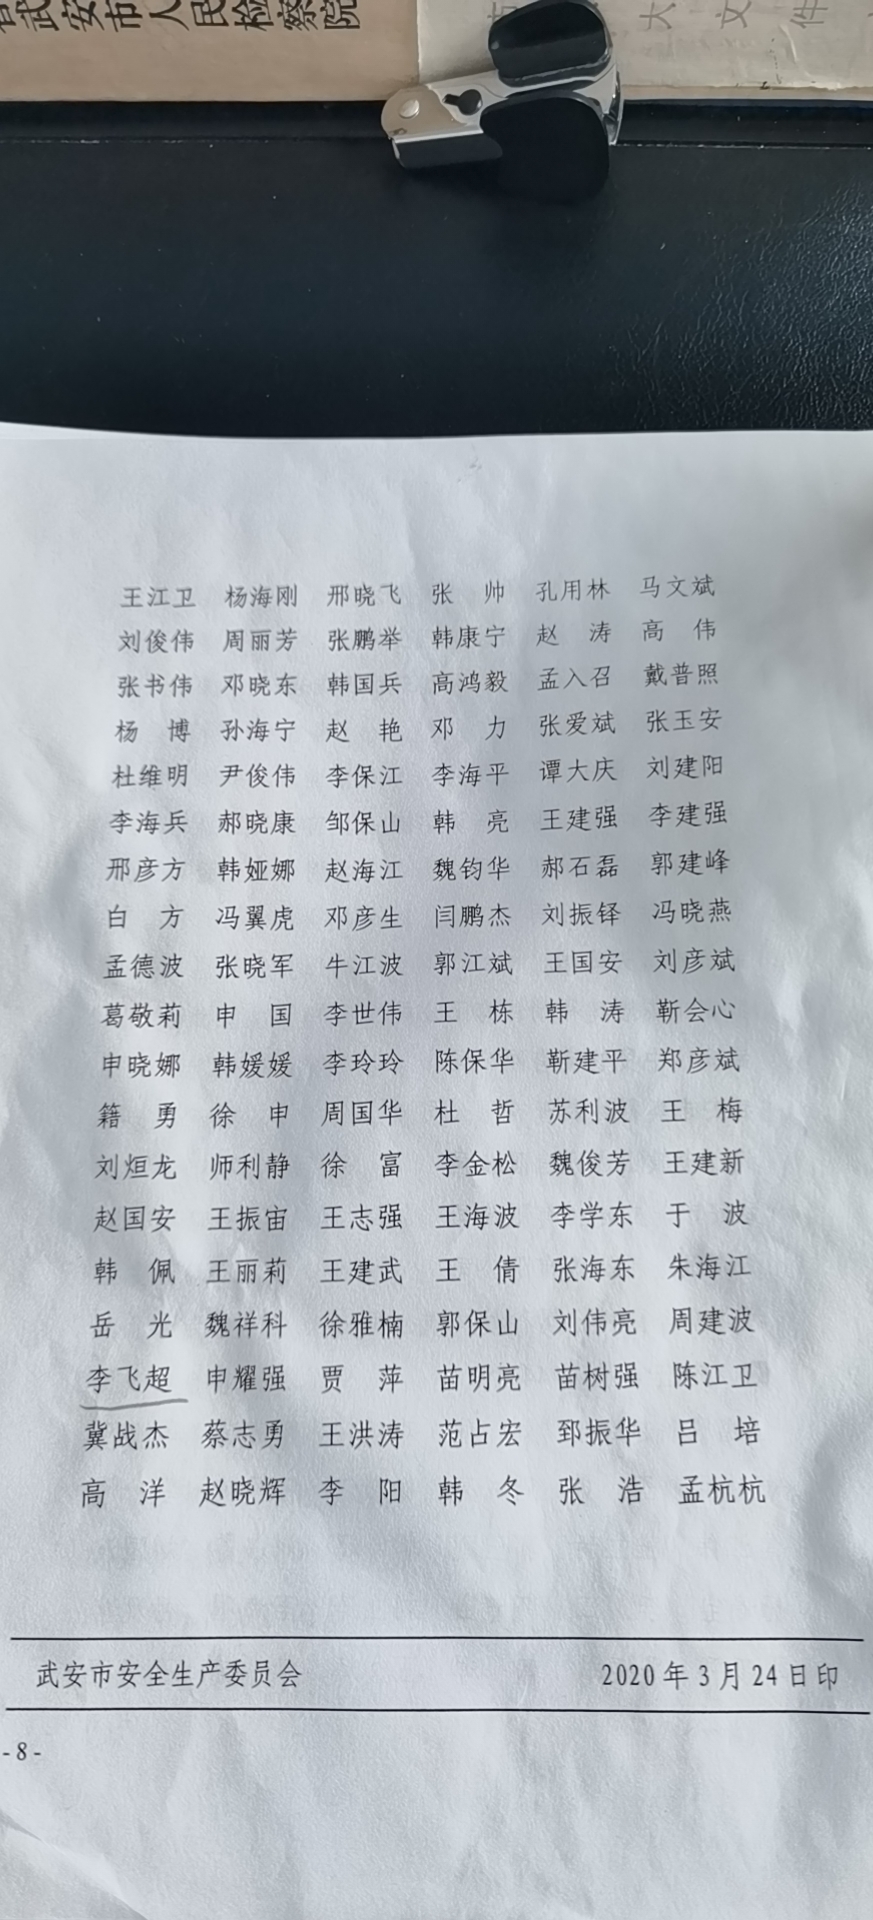 武安市人民检察院
大文件
王江卫 杨海刚 邢晓飞 张帅 孔用林 马文斌
刘俊伟 周丽芳 张鹏举 韩康宁 赵涛 高伟
张书伟 邓晓东 韩国兵 高鸿毅 孟入召 戴普照
杨博 孙海宁 赵艳 邓力 张爱斌 张玉安
杜维明 尹俊伟 李保江 李海平 谭大庆 刘建阳
李海兵 郝晓康 邹保山 韩亮 王建强 李建强
邢彦方 韩娅娜 赵海江 魏钧华 郝石磊 郭建峰
白方 冯翼虎 邓彦生 闫鹏杰 刘振铎 冯晓燕
孟德波 张晓军 牛江波 郭江斌 王国安 刘彦斌
葛敬莉 申国 李世伟 王栋 韩涛 靳会心
申晓娜 韩媛媛 李玲玲 陈保华 靳建平 郑彦斌
籍勇 徐申 周国华 杜哲 苏利波 王梅
刘烜龙 师利静 徐富 李金松 魏俊芳 王建新
赵国安 王振宙 王志强 王海波 李学东 于波
韩佩 王丽莉 王建武 王倩 张海东 朱海江
岳光 魏祥科 徐雅楠 郭保山 刘伟亮 周建波
李飞超 申耀强 贾萍 苗明亮 苗树强 陈江卫
冀战杰 蔡志勇 王洪涛 范占宏 郅振华 吕培
高洋 赵晓辉 李阳 韩冬 张浩 孟杭杭
武安市安全生产委员会 2020年3月24日印
-8-